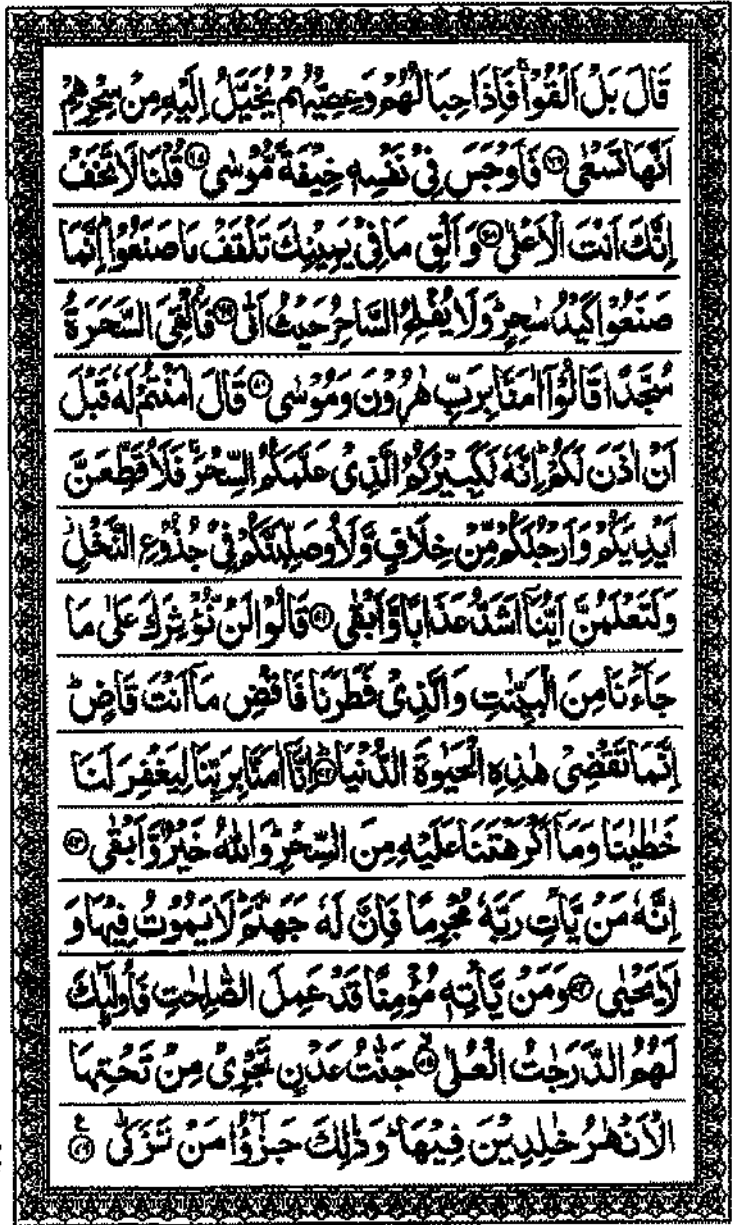 قَالَ بَلْ اَلْقُوْا ۚ فَاِذَا حِبَالُهُمْ وَعِصِيُّهُمْ يُخَيَّلُ اِلَيْهِ مِنْ سِحْرِهِمْ
اَنَّهَا تَسْعٰى ۝۶۶ فَاَوْجَسَ فِيْ نَفْسِهٖ خِيْفَةً مُّوْسٰى ۝۶۷ قُلْنَا لَا تَخَفْ
اِنَّكَ اَنْتَ الْاَعْلٰى ۝۶۸ وَاَلْقِ مَا فِيْ يَمِيْنِكَ تَلْقَفْ مَا صَنَعُوْا ؕ اِنَّمَا
صَنَعُوْا كَيْدُ سٰحِرٍ ؕ وَلَا يُفْلِحُ السَّاحِرُ حَيْثُ اَتٰى ۝۶۹ فَاُلْقِيَ السَّحَرَةُ
سُجَّدًا قَالُوْٓا اٰمَنَّا بِرَبِّ هٰرُوْنَ وَمُوْسٰى ۝۷۰ قَالَ اٰمَنْتُمْ لَهٗ قَبْلَ
اَنْ اٰذَنَ لَكُمْ ؕ اِنَّهٗ لَكَبِيْرُكُمُ الَّذِيْ عَلَّمَكُمُ السِّحْرَ ۚ فَلَاُقَطِّعَنَّ
اَيْدِيَكُمْ وَاَرْجُلَكُمْ مِّنْ خِلَافٍ وَّلَاُوصَلِّبَنَّكُمْ فِيْ جُذُوْعِ النَّخْلِ ؗ
وَلَتَعْلَمُنَّ اَيُّنَآ اَشَدُّ عَذَابًا وَّاَبْقٰى ۝۷۱ قَالُوْا لَنْ نُّؤْثِرَكَ عَلٰى مَا
جَآءَنَا مِنَ الْبَيِّنٰتِ وَالَّذِيْ فَطَرَنَا فَاقْضِ مَآ اَنْتَ قَاضٍ ؕ
اِنَّمَا تَقْضِيْ هٰذِهِ الْحَيٰوةَ الدُّنْيَا ۝۷۲ اِنَّآ اٰمَنَّا بِرَبِّنَا لِيَغْفِرَ لَنَا
خَطٰيٰنَا وَمَآ اَكْرَهْتَنَا عَلَيْهِ مِنَ السِّحْرِ ؕ وَاللّٰهُ خَيْرٌ وَّاَبْقٰى ۝۷۳
اِنَّهٗ مَنْ يَّاْتِ رَبَّهٗ مُجْرِمًا فَاِنَّ لَهٗ جَهَنَّمَ ؕ لَا يَمُوْتُ فِيْهَا وَ
لَا يَحْيٰى ۝۷۴ وَمَنْ يَّاْتِهٖ مُؤْمِنًا قَدْ عَمِلَ الصّٰلِحٰتِ فَاُولٰٓئِكَ
لَهُمُ الدَّرَجٰتُ الْعُلٰى ۝۷۵ جَنّٰتُ عَدْنٍ تَجْرِيْ مِنْ تَحْتِهَا
الْاَنْهٰرُ خٰلِدِيْنَ فِيْهَا ؕ وَذٰلِكَ جَزٰٓؤُا مَنْ تَزَكّٰى ۝۷۶